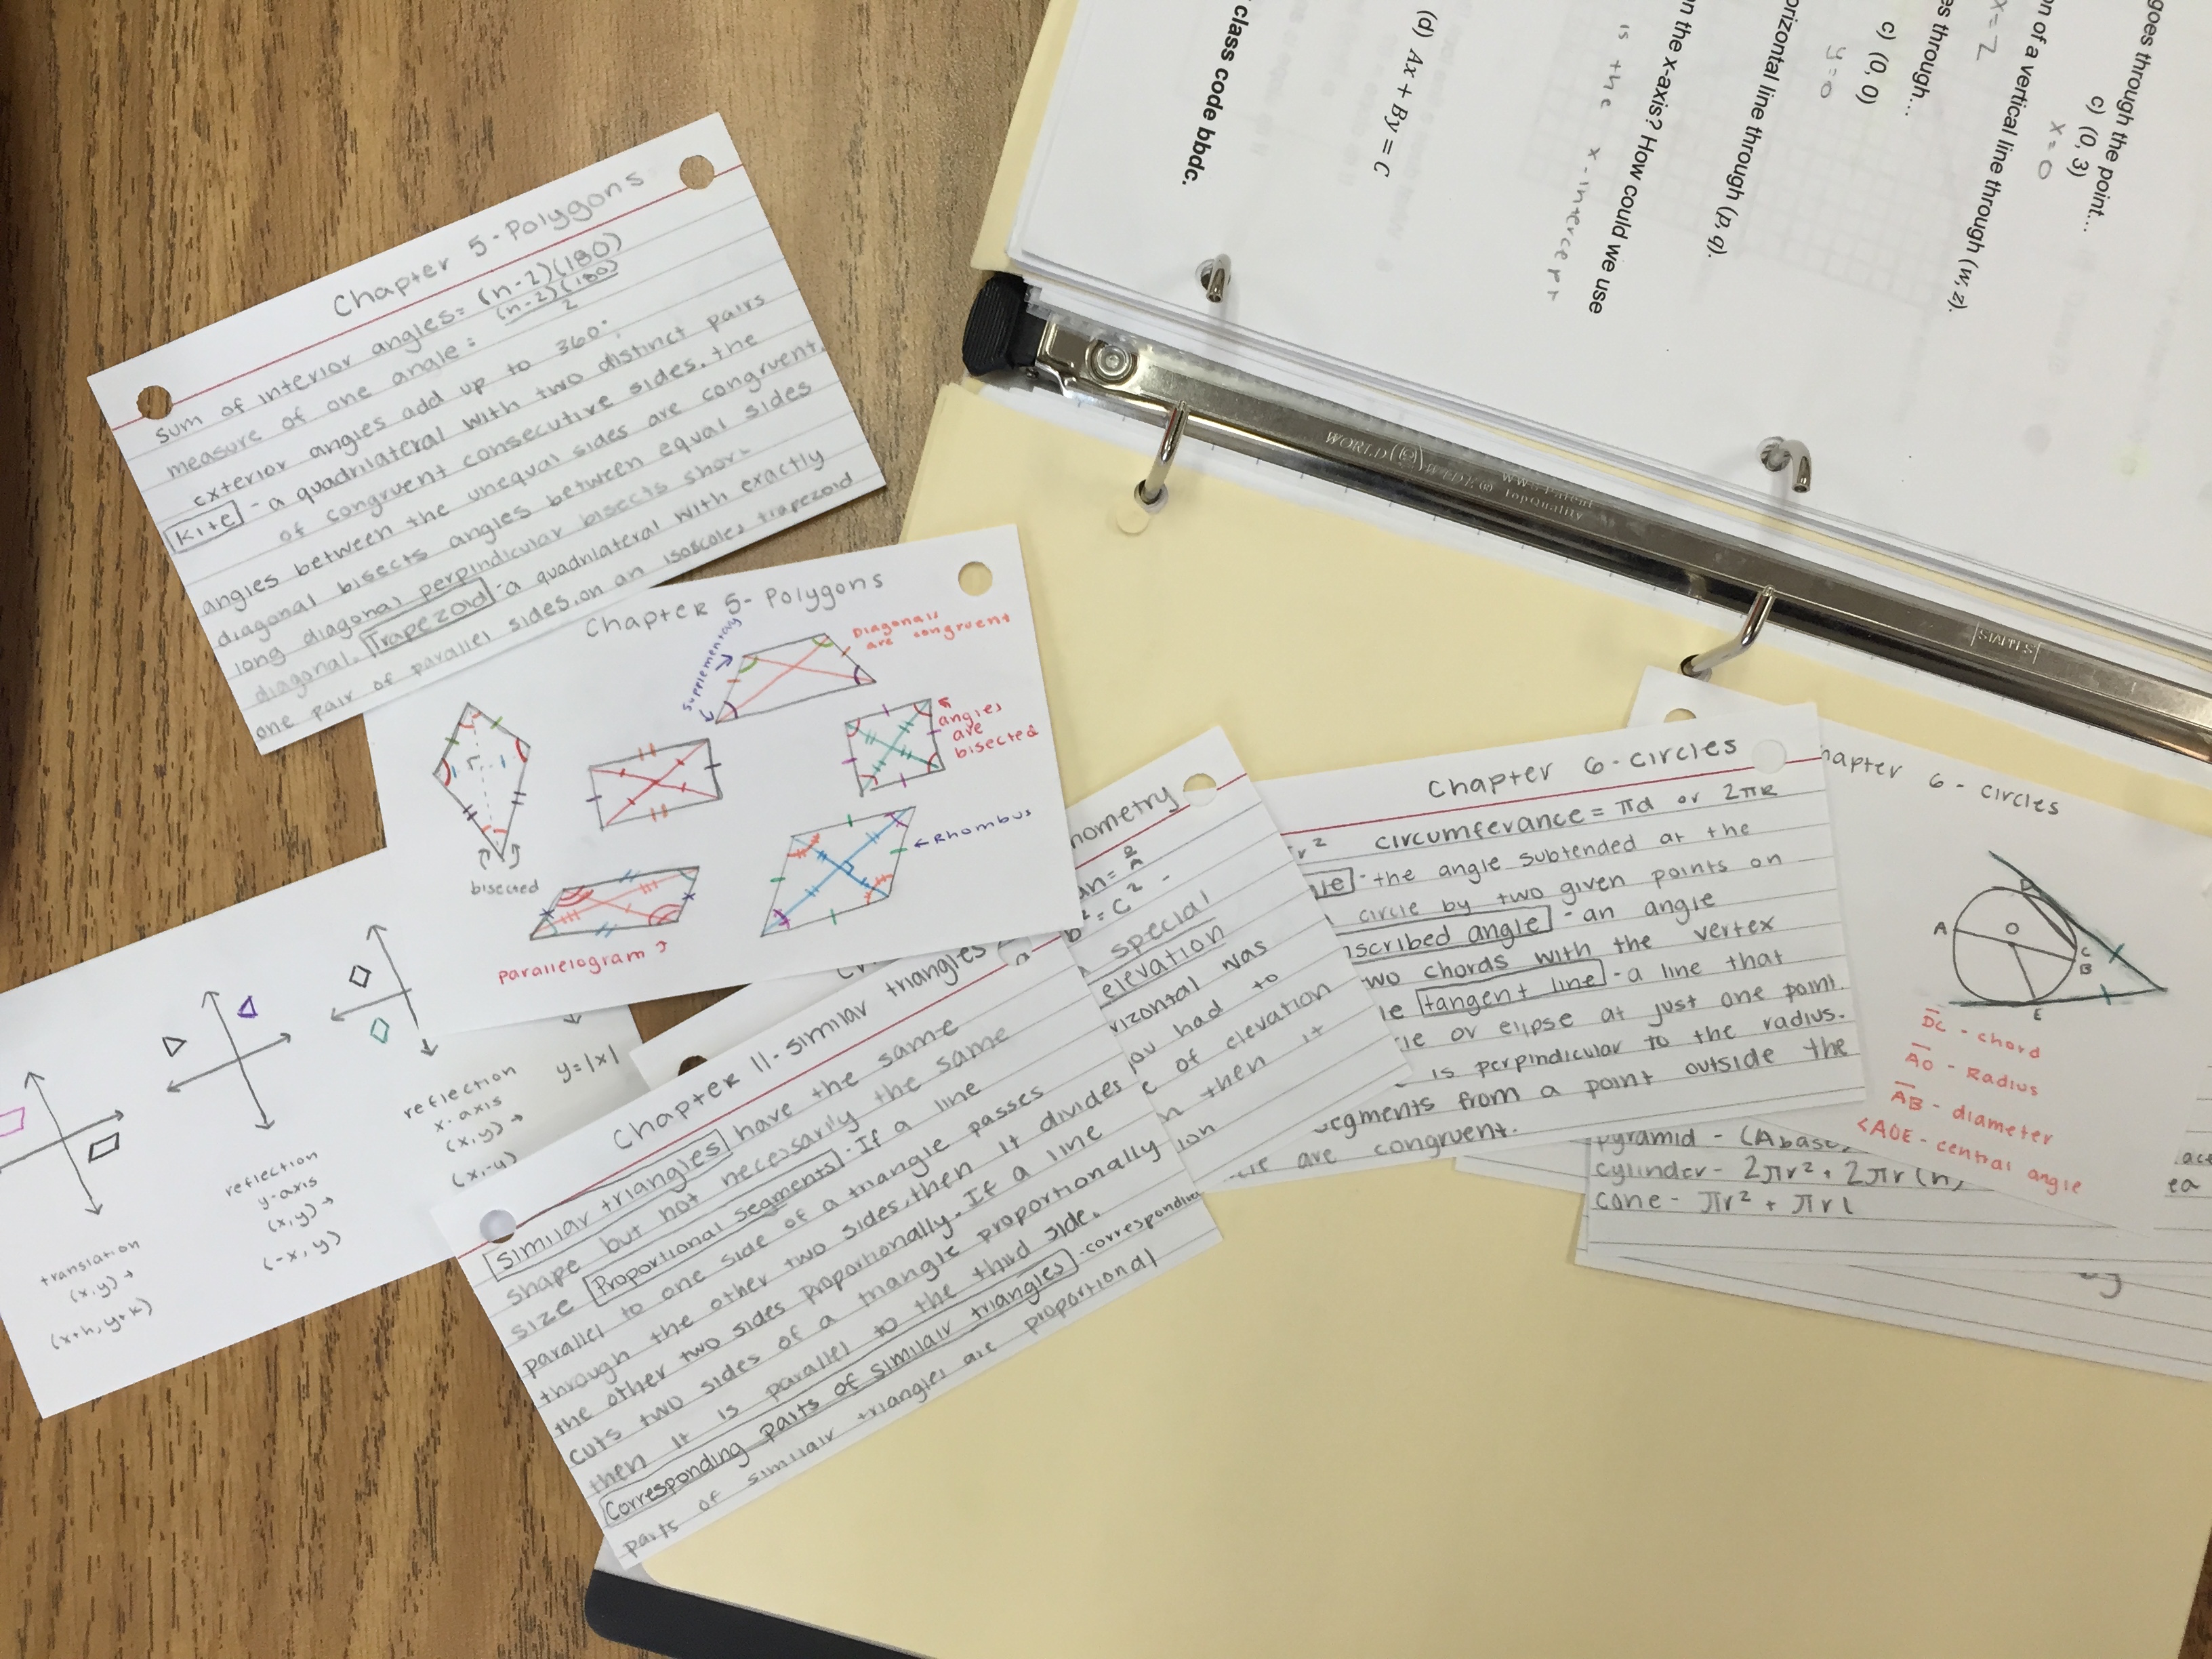 Chapter 5-Polygons
sum of interior angles= (n-2)(180)
measure of one angle: (n-2)(180)
2
exterior angles add up to 360.
Kite - a quadrilateral with two distinct pairs
of congruent consecutive sides. the
angles between the unequal sides are congruent.
diagonal bisects angles between equal sides
long diagonal perpindicular bisects shor-
diagonal. Trapezoid - a quadrilateral with exactly
one pair of parallel sides. on an isosceles trapezoid
Chapter 5-Polygons
supplementary
Diagonals
are congruent
angles
are
bisected
bisected
Rhombus
parallelogram
translation
(x,y) →
(x+h, y+k)
reflection
y-axis
(x,y) →
(-x, y)
reflection
x-axis
(x,y) →
(x,-y)
y=|x|
Chapter 11-similar triangles
Similar triangles have the same
shape but not necessarily the same
size Proportional segments. If a line
parallel to one side of a triangle passes
through the other two sides, then it divides
the other two sides proportionally. If a line
cuts two sides of a triangle proportionally
then it is parallel to the third side.
Corresponding parts of similair triangles - corresponding
parts of similair triangles are proportional
nometry
an= o
A
²=c²-
special
elevation
rizontal was
you had to
of elevation
then it
ion
Chapter 6-circles
r² circumferance = πd or 2πR
le - the angle subtended at the
circle by two given points on
nscribed angle - an angle
two chords with the vertex
tangent line - a line that
or elipse at just one point.
is perpindicular to the radius.
segments from a point outside the
are congruent.
hapter 6 - circles
A
O
D
C
B
E
DC - chord
AO - Radius
AB - diameter
<AOE - central angle
pyramid - (Abase
cylinder - 2πr² + 2πr(h)
cone - πr² + πrl
ea
class code bbdc.
(d) Ax + By = C
is the x-intercept
n the x-axis? How could we use
orizontal line through (p, q).
y=0
c) (0, 0)
es through...
x=2
on of a vertical line through (w, z).
x=0
c) (0, 3)
goes through the point...
WORLDWIDE
TopQuality
STAPLES